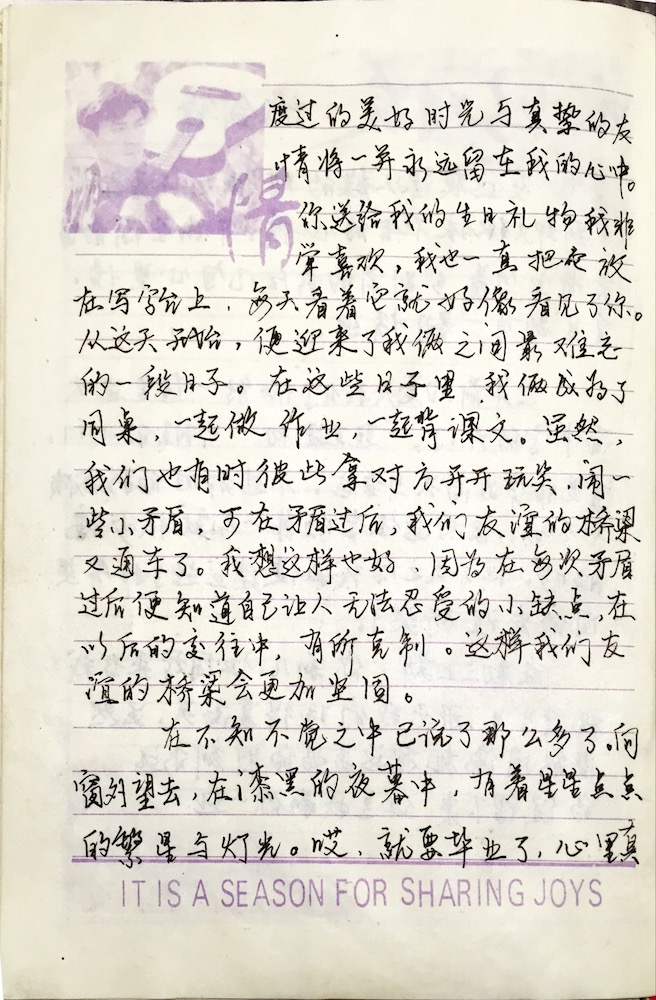 度过的美好时光与真挚的友
情将一并永远留在我的心中。
你送给我的生日礼物我非
常喜欢，我也一直把它放
在写字台上，每天看着它就好像看见了你。
从这天开始，便迎来了我俩之间最难忘
的一段日子。在这些日子里，我俩成为了
同桌，一起做作业，一起背课文。虽然，
我们也有时彼此拿对方并开玩笑，闹一
些小矛盾，可在矛盾过后，我们友谊的桥梁
又通车了。我想这样也好，因为在每次矛盾
过后便知道自己让人无法忍受的小缺点，在
以后的交往中，有所克制。这样我们友
谊的桥梁会更加坚固。
在不知不觉之中已说了那么多了。向
窗外望去，在漆黑的夜暮中，有着星星点点
的繁星与灯光。哎，就要毕业了，心里真
情
IT IS A SEASON FOR SHARING JOYS